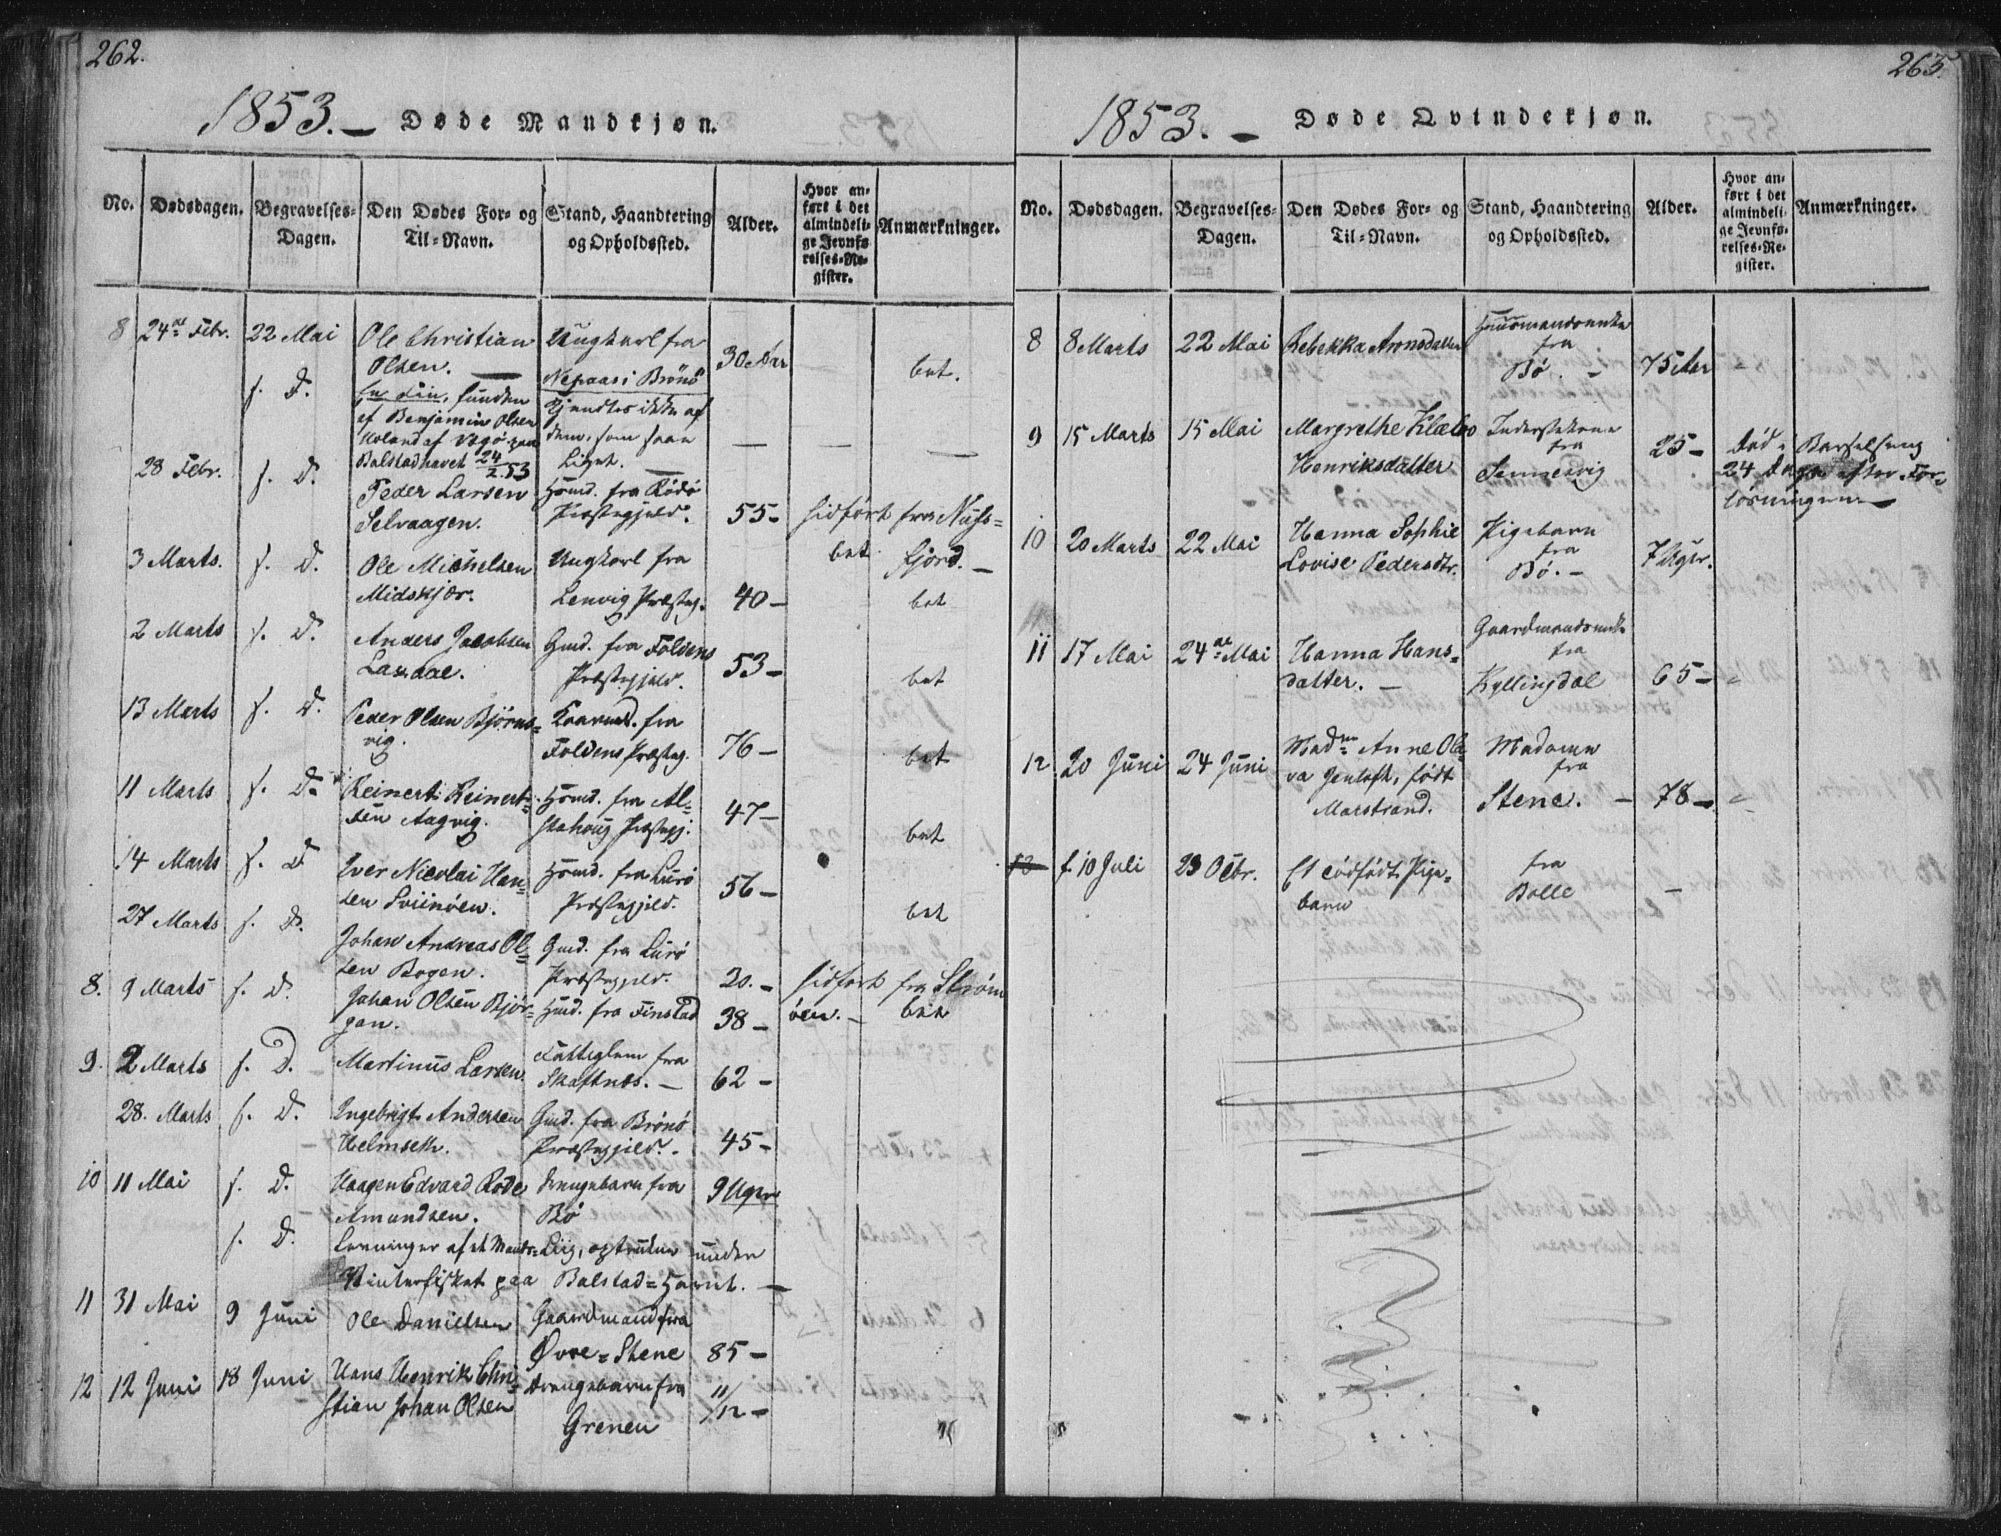 262.
1853. — Døde Mandkjøn.
No. Dødsdagen. Begravelses-Dagen. Den Dødes For- og Til-Navn. Stand, Haandtering og Opholdssted. Alder. Hvor anført i det almindelige Jevnførelses-Register. Anmærkninger.
8 24de Febr. 22 Mai Ole Christian Ungkarl fra
Olsen. — Brönö 30 Aar bet.
s. D. funden kjendtes ikke af
af Benjamin Olsen dem, som saae
Liget. —
Balstadhavet 24/2.53
28 Febr. s. D. Peder Larsen Hsmd. fra Rödö
Selvaagen. Præstegjeld. 55 – hidfört fra Nufs=
bet fjord. —
3 Marts. s. D. Ole Michelsen Ungkarl fra
Midskjær. Lenvig Præsteg. 40 – bet
2 Marts s. D. Anders Jacobsen Gmd. fra Foldens
Præstegjeld. 53 – bet
13 Marts s. D. Peder Olsen Björns=
vig. Kaarmd. fra
Foldens Præsteg. 76 – bet
11 Marts s. D. Reinert Reinert=
sen Aagvig. Hsmd. fra Al=
stahoug Præstegj. 47 – bet
14 Marts s. D. Iver Nicolai Han=
sen Sviinöen. Hsmd. fra Lurö
Præstegjeld. 56 – bet
27 Marts s. D. Johan Andreas Ol=
sen Bogen. Gmd. fra Lurö
Præstegjeld. 20. – hidfört fra Ström
8. 9 Marts s. D. Johan Olsen Björ=
gan. Hmd. fra Finstad 38 – öen. — bet
9. 2 Marts s. D. Martinus Larsen Fattiglem fra
Skaftnæs. — 62 –
28. Marts s. D. Ingebrigt Andersen Gmd. fra Brönö
Helmseth. Præstegjeld. 45 –
10 11 Mai s. D. Haagen Edvard Rode Drengebarn fra 9 Uger
Amundsen. Bö
s. D. Levninger af et Mands=Liig, optrukne under
Vinterfisket paa Balstad=Havet. —
11 31 Mai 9 Juni Ole Danielsen Gaardmand fra
Øvre=Stene 85 –
12 12 Juni 18 Juni Hans Henrik Chri=
stian Johan Olsen Drengebarn fra
Grenen 11/12 –
263.
1853. — Døde Qvindekjøn.
No. Dødsdagen. Begravelses-Dagen. Den Dødes For- og Til-Navn. Stand, Haandtering og Opholdssted. Alder. Hvor anført i det almindelige Jevnførelses-Register. Anmærkninger.
8 8 Marts 22 Mai Rebekka Aronsdatter Huusmandsenke
fra
Bö. – 75 Aar
9 15 Marts 15 Mai Margrethe Klæbo
Henriksdatter Inderstekone
fra
Sennesvig 25 – Död i Barselseng
24 Dage efter For=
lösningen —
10 20 Marts 22 Mai Hanna Sophie
Lovise Pedersdtr. Pigebarn
fra
Bö. – 7 Uger.
11 17 Mai 24de Mai Hanna Hans=
datter. — Gaardmandsenke
fra
Kyllingdal 65 – "
12 20 Juni 24 Juni Madm Anne Ola
va Jentoft, födt
Marstrand. Madame
fra
Stene. – 78 – "
f. 10 Juli 23 Octbr. Et dödfödt Pige=
barn fra
Bolle –